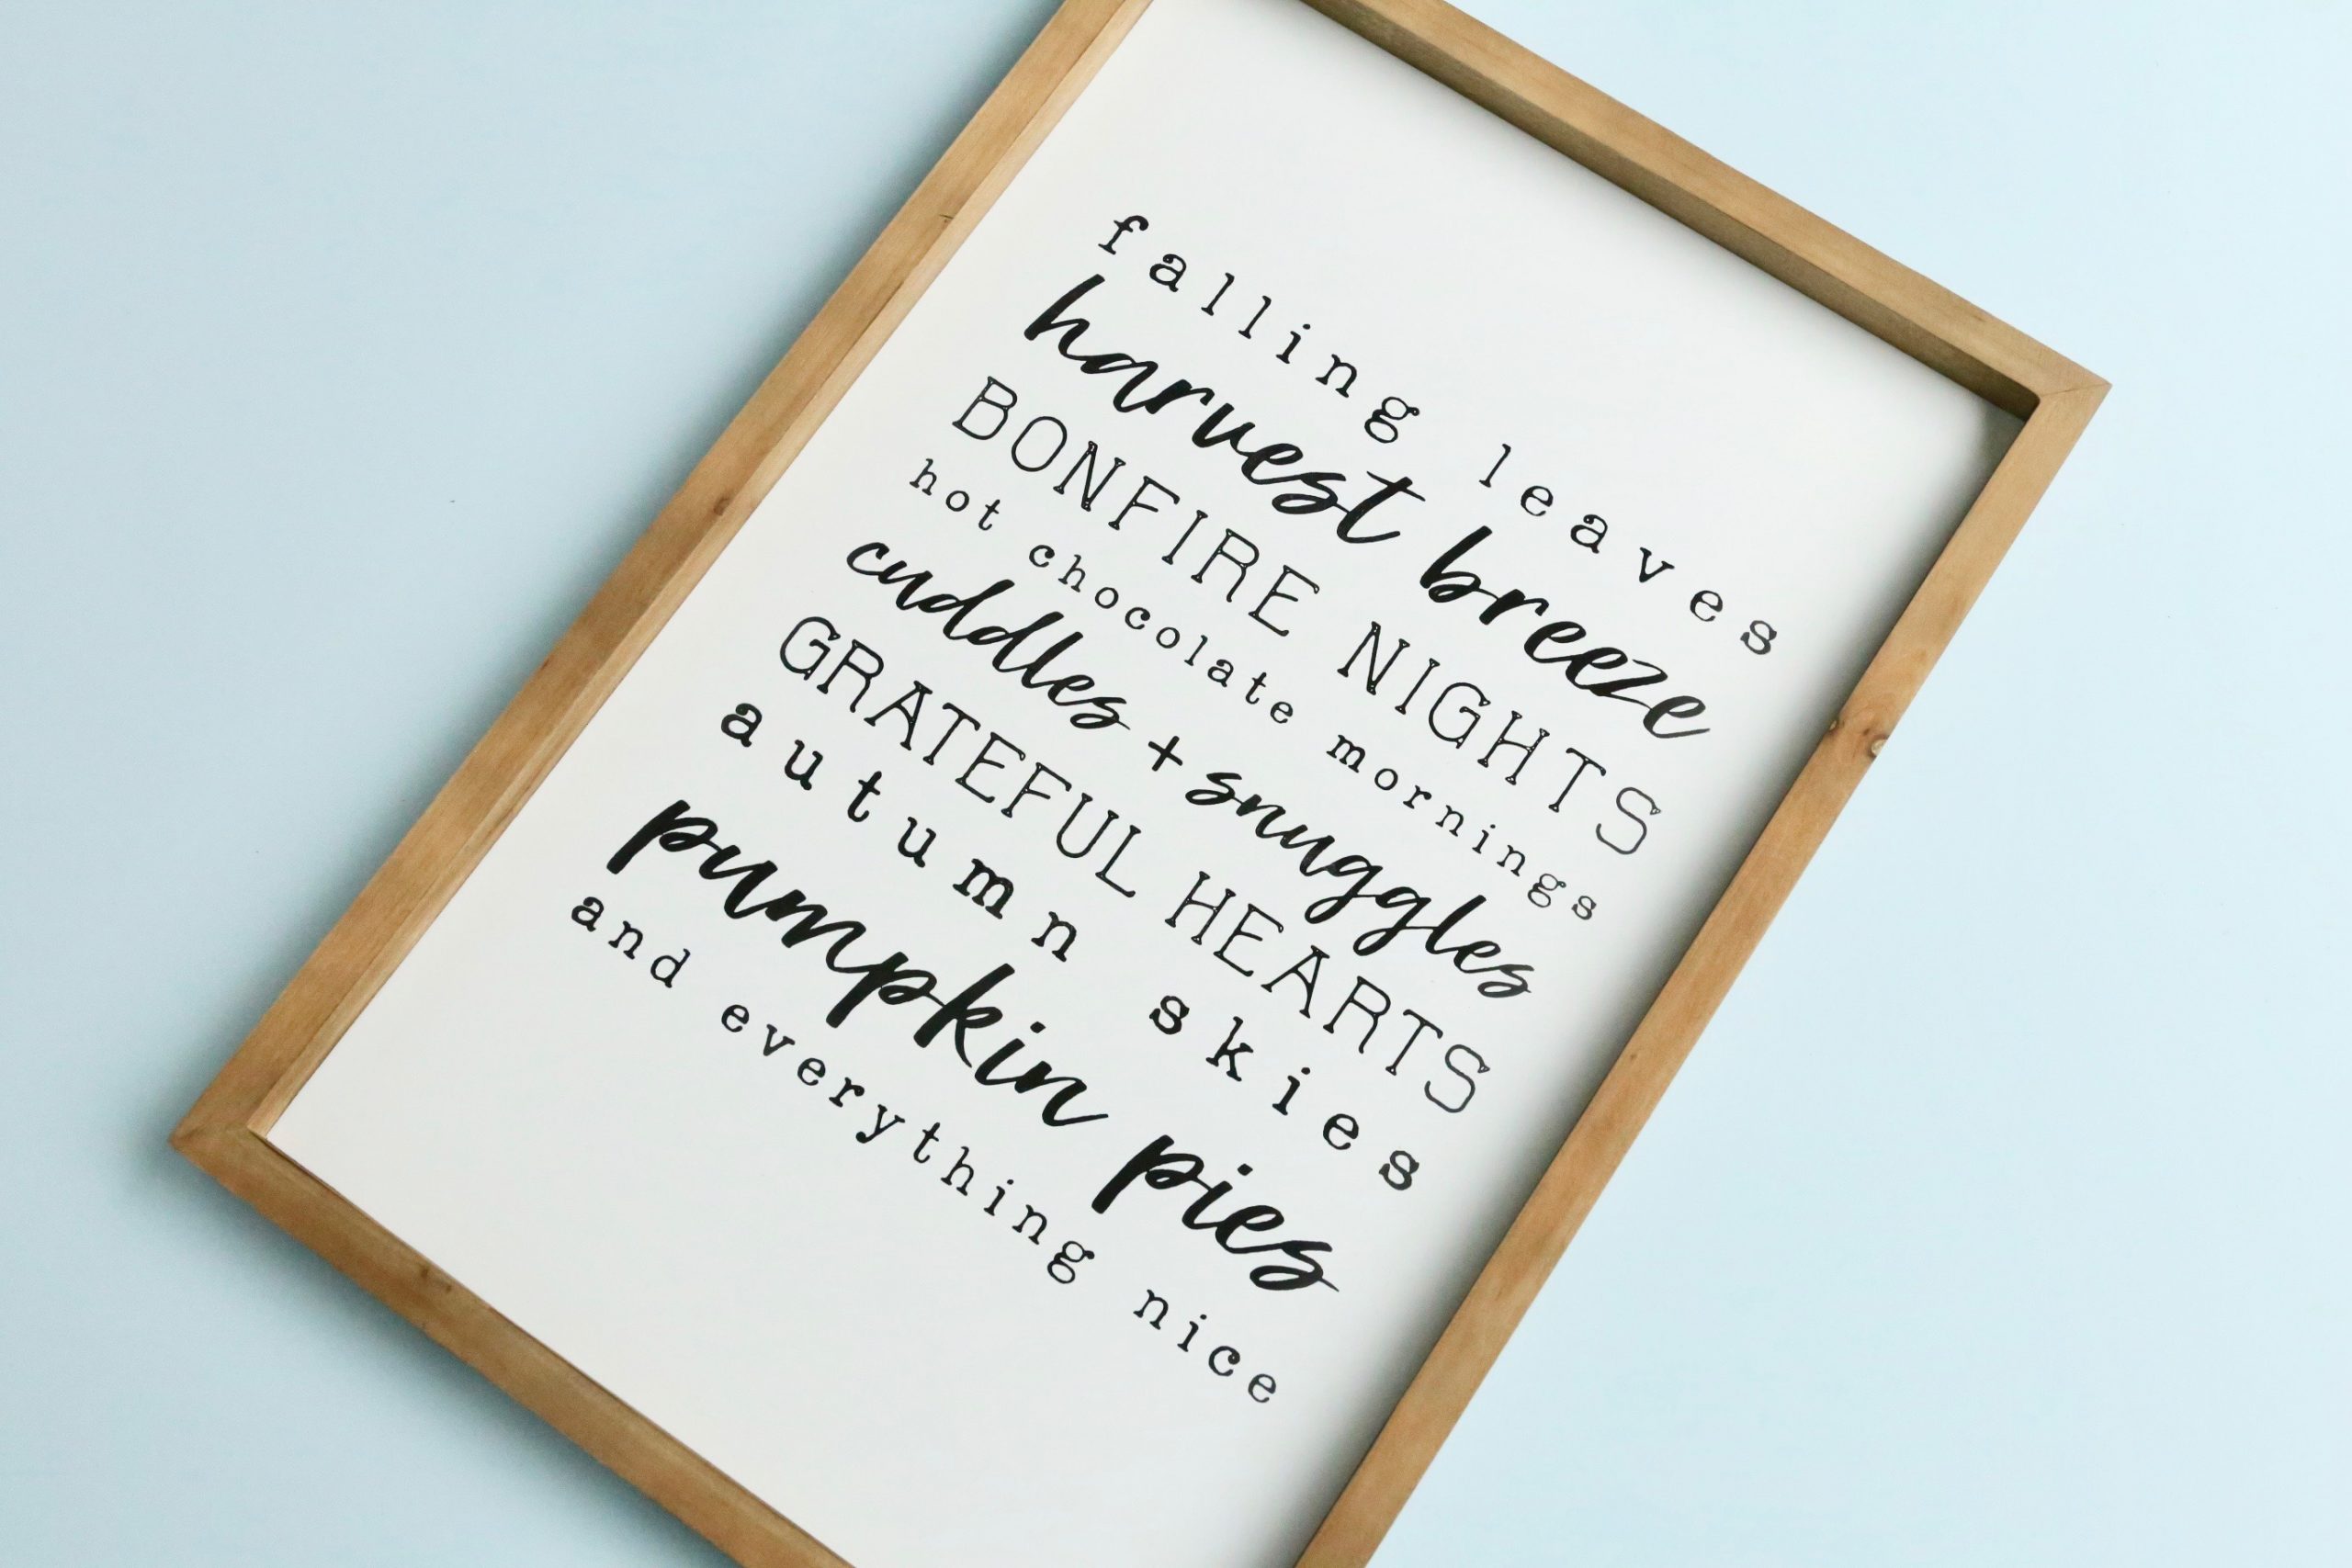 falling leaves
harvest breeze
BONFIRE NIGHTS
hot chocolate mornings
cuddles + snuggles
GRATEFUL HEARTS
autumn skies
pumpkin pies
and everything nice